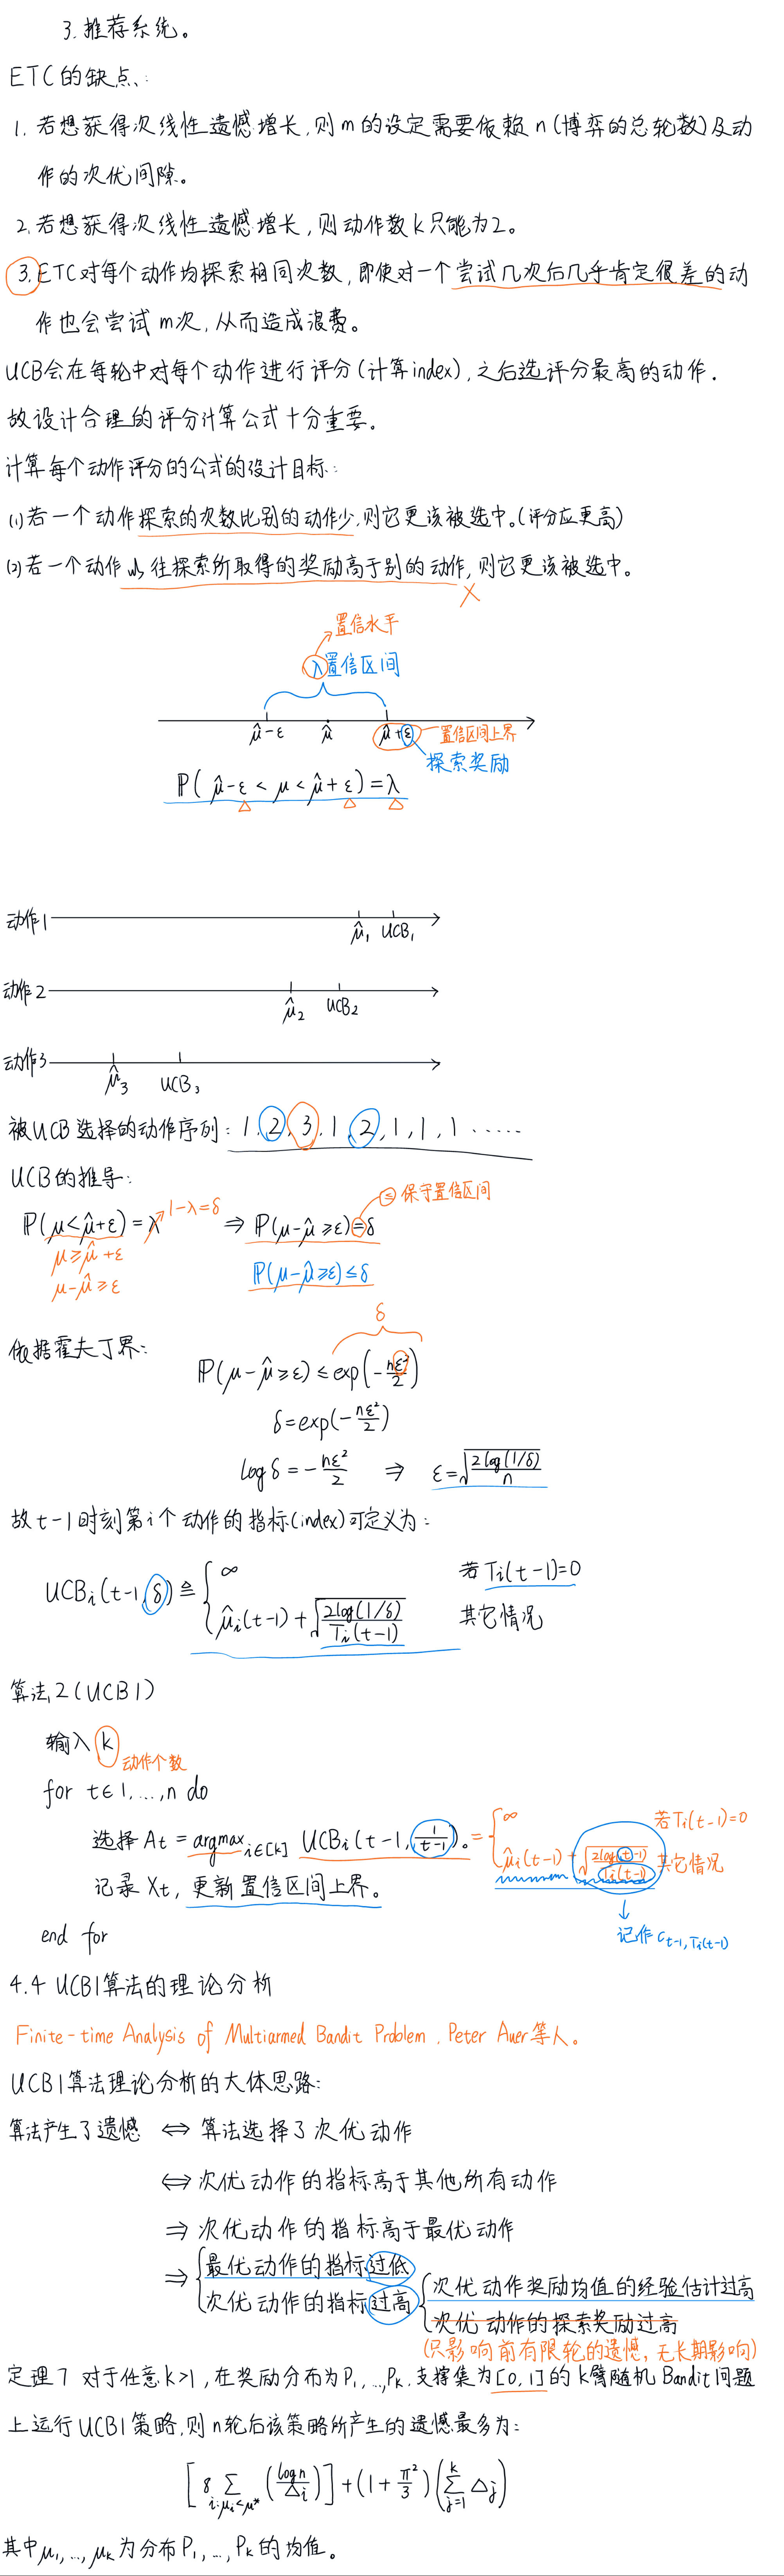 3. 推荐系统。
ETC的缺点:
1. 若想获得次线性遗憾增长,则m的设定需要依赖n(博弈的总轮数)及动
作的次优间隙。
2. 若想获得次线性遗憾增长,则动作数k只能为2。
3. ETC对每个动作均探索相同次数,即使对一个尝试几次后几乎肯定很差的动
作也会尝试m次,从而造成浪费。
UCB会在每轮中对每个动作进行评分(计算index),之后选评分最高的动作.
故设计合理的评分计算公式十分重要。
计算每个动作评分的公式的设计目标:
(1)若一个动作探索的次数比别的动作少,则它更该被选中。(评分应更高)
(2)若一个动作以往探索所取得的奖励高于别的动作,则它更该被选中。
X
置信水平
λ置信区间
μ̂-ε μ̂ μ̂+ε 置信区间上界
探索奖励
ℙ( μ̂-ε < μ < μ̂+ε ) = λ
动作1
μ̂₁ UCB₁
动作2
μ̂₂ UCB₂
动作3
μ̂₃ UCB₃
被UCB选择的动作序列: 1, 2, 3, 1, 2, 1, 1, 1 ......
UCB的推导:
1-λ=δ ≤ 保守置信区间
ℙ(μ<μ̂+ε) = λ ⇒ ℙ(μ-μ̂≥ε)=δ
μ≥μ̂+ε
μ-μ̂≥ε ℙ(μ-μ̂≥ε)≤δ
δ
依据霍夫丁界: ℙ(μ-μ̂≥ε) ≤ exp(-nε²/2)
δ=exp(-nε²/2)
log δ = -nε²/2 ⇒ ε=√(2log(1/δ)/n)
故t-1时刻第i个动作的指标(index)可定义为:
UCBᵢ(t-1,δ) ≜ { ∞ 若Tᵢ(t-1)=0
μ̂ᵢ(t-1)+√(2log(1/δ)/Tᵢ(t-1)) 其它情况
算法2(UCB1)
输入k 动作个数
for t∈1,...,n do
选择 At = argmax i∈[k] UCBᵢ(t-1, 1/(t-1))。= { ∞ 若Tᵢ(t-1)=0
μ̂ᵢ(t-1)+√(2log(t-1)/Tᵢ(t-1)) 其它情况
记录Xt, 更新置信区间上界。
记作 c t-1,Tᵢ(t-1)
end for
4.4 UCB1算法的理论分析
Finite-time Analysis of Multiarmed Bandit Problem. Peter Auer等人。
UCB1算法理论分析的大体思路:
算法产生了遗憾 ⇔ 算法选择了次优动作
⇔ 次优动作的指标高于其他所有动作
⇒ 次优动作的指标高于最优动作
⇒ { 最优动作的指标过低
次优动作的指标过高 { 次优动作奖励均值的经验估计过高
次优动作的探索奖励过高
(只影响前有限轮的遗憾,无长期影响)
定理7 对于任意k>1,在奖励分布为P₁,...,Pₖ,支撑集为[0,1]的k臂随机Bandit问题
上运行UCB1策略,则n轮后该策略所产生的遗憾最多为:
[8 Σ i:μᵢ<μ* (log n/Δᵢ)] + (1+π²/3)(Σ j=1 k Δⱼ)
其中μ₁,...,μₖ为分布P₁,...,Pₖ的均值。